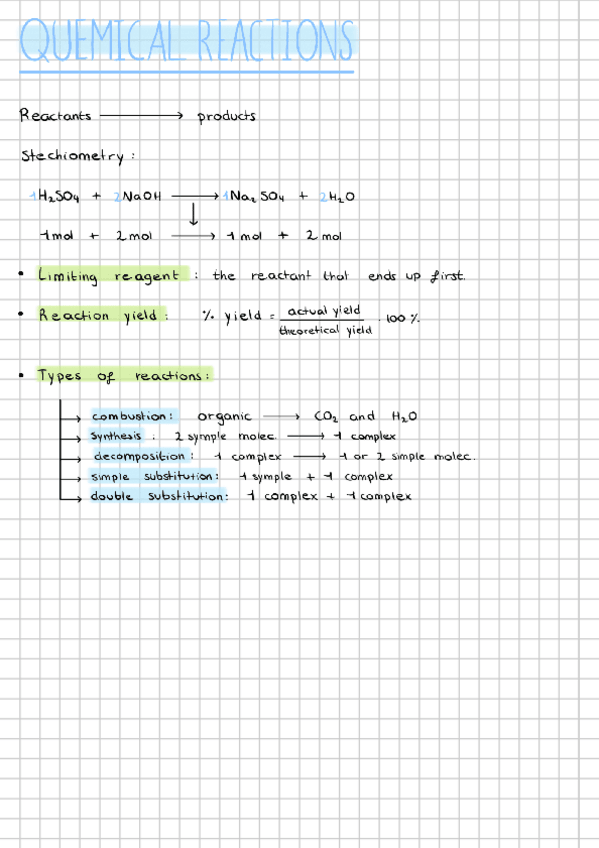 QUEMICAL REACTIONS
Reactants → products
Stechiometry :
1H₂SO₄ + 2NaOH → 1Na₂SO₄ + 2H₂O
↓
1mol + 2mol → 1 mol + 2 mol
• Limiting reagent : the reactant that ends up first.
• Reaction yield : % yield = actual yield / theoretical yield · 100 %
• Types of reactions :
→ combustion : organic → CO₂ and H₂O
→ synthesis : 2 symple molec. → 1 complex
→ decomposition : 1 complex → 1 or 2 simple molec.
→ simple substitution : 1 symple + 1 complex
→ double substitution : 1 complex + 1 complex